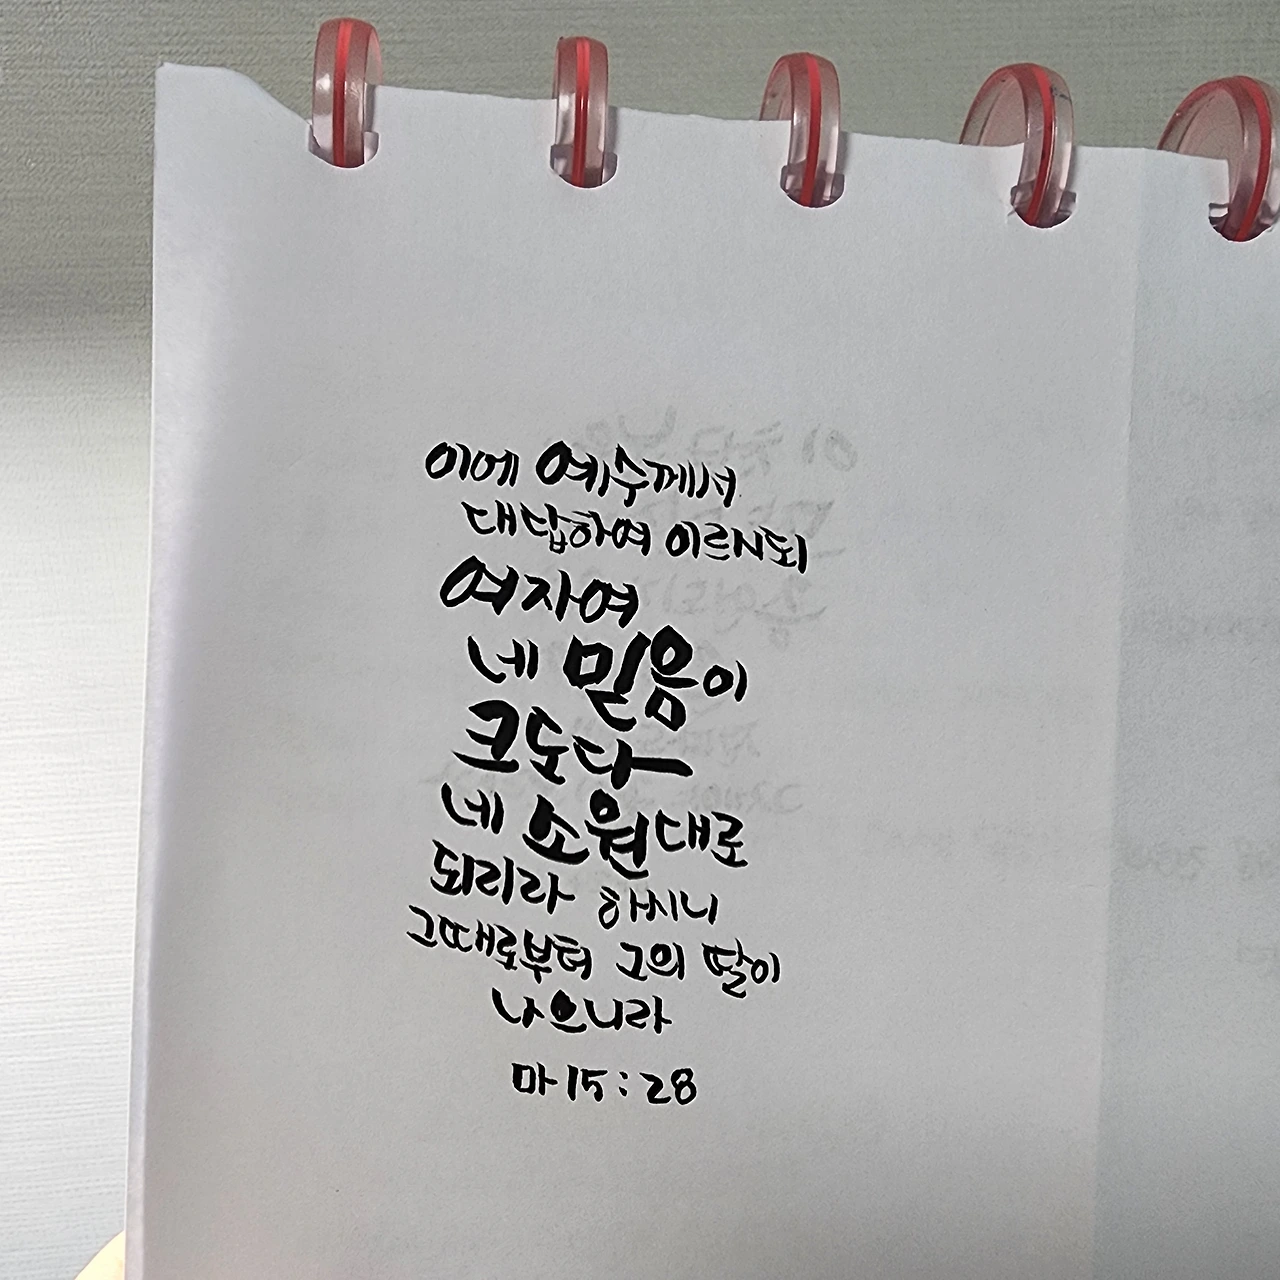 이에 예수께서
대답하여 이르시되
여자여
네 믿음이
크도다
네 소원대로
되리라 하시니
그때로부터 그의 딸이
나으니라
마 15:28